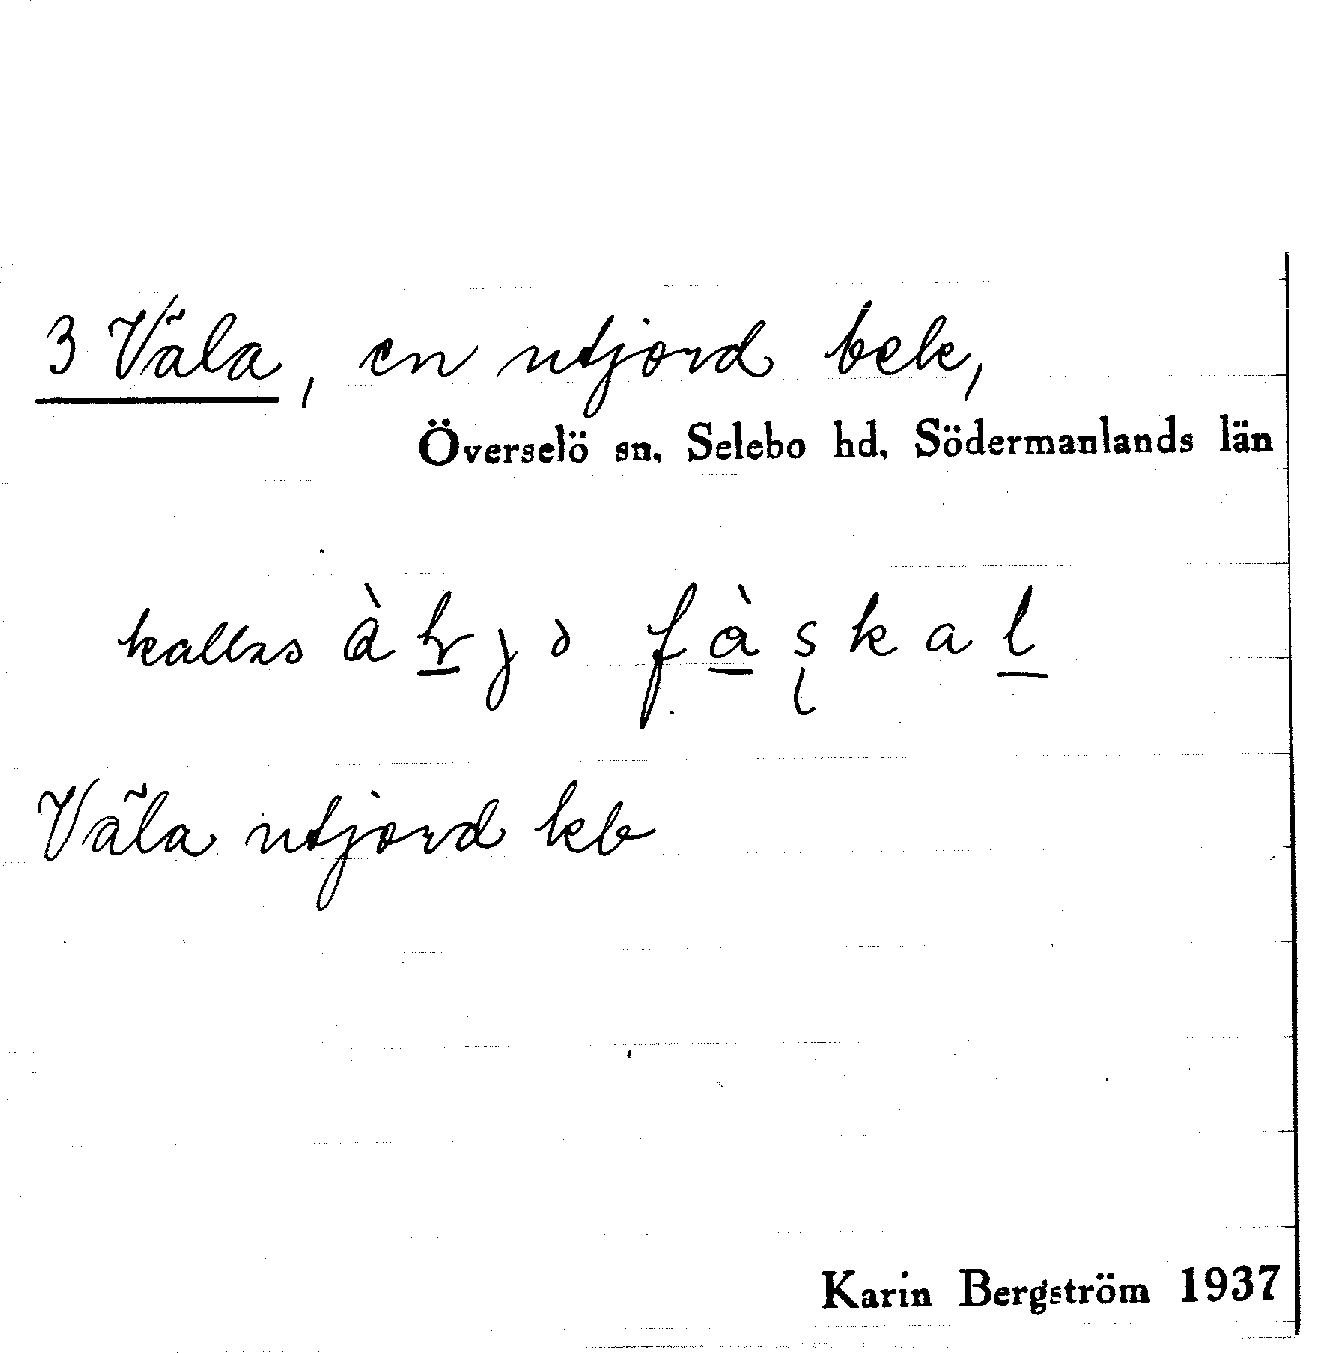 3 Väla, en utjord bek,
Överselö sn. Selebo hd. Södermanlands län
kallas
Väla utjord kb
Karin Bergström 1937